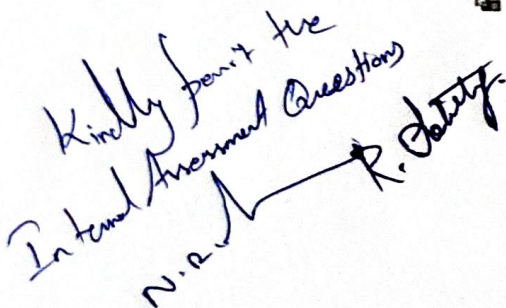 Kindly permit the
Internal Assessment Questions
N.R.
R.